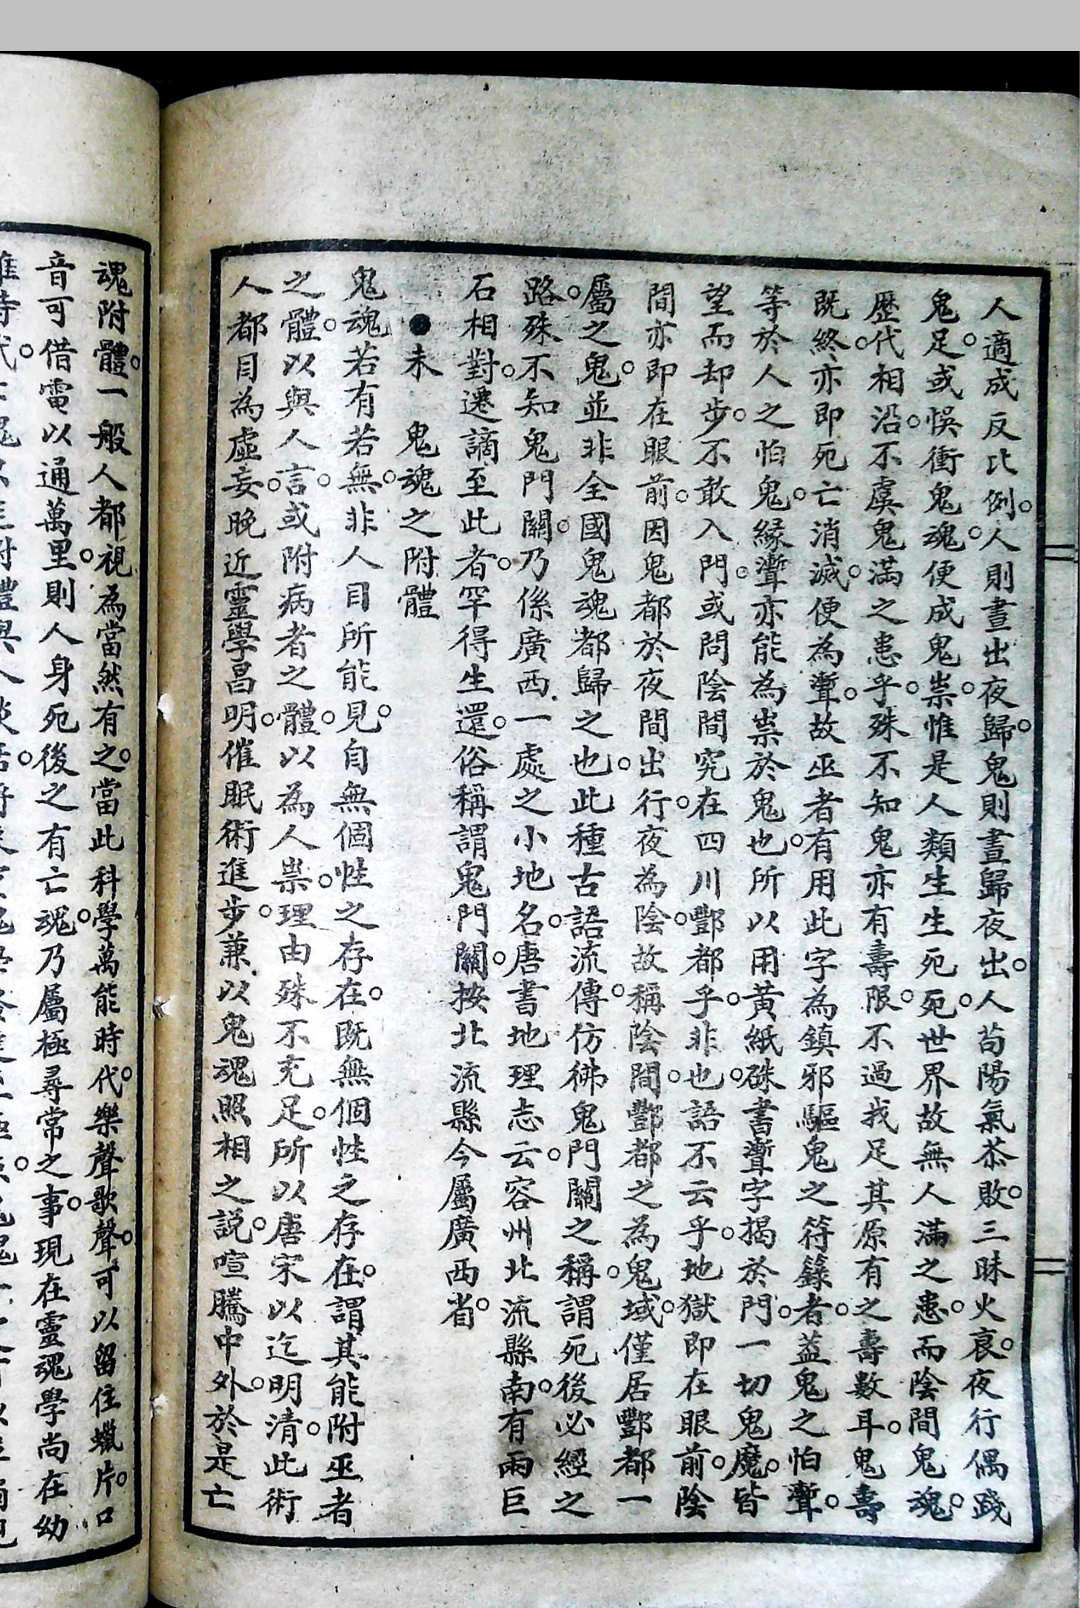 人適成反比例。人則晝出夜歸。鬼則晝歸夜出。人苟陽氣苶敗。三昧火衰。夜行偶踐
鬼足。或悞衝鬼魂。便成鬼祟。惟是人類生生死死。世界故無人滿之患。而陰間鬼魂。
歷代相沿。不虞鬼滿之患乎。殊不知鬼亦有壽限。不過我足其原有之壽數耳。鬼壽
既終。亦即死亡消滅。便為聻。故巫者有用此字為鎮邪驅鬼之符籙者。葢鬼之怕聻。
等於人之怕鬼。緣聻亦能為祟於鬼也。所以用黃紙硃書聻字揭於門。一切鬼魔。皆
望而却步。不敢入門。或問陰間究在四川酆都乎。非也。語不云乎。地獄即在眼前。陰
間亦即在眼前。因鬼都於夜間出行。夜為陰。故稱陰間。酆都之為鬼域。僅居酆都一
屬之鬼。並非全國鬼魂都歸之也。此種古語流傳。仿彿鬼門關之稱。謂死後必經之
路。殊不知鬼門關。乃係廣西一處之小地名。唐書地理志云。容州北流縣南。有兩巨
石相對。遷謫至此者。罕得生還。俗稱謂鬼門關。按北流縣今屬廣西省。
●未　鬼魂之附體
鬼魂若有若無。非人目所能見。自無個性之存在。既無個性之存在。謂其能附巫者
之體。以與人言。或附病者之體。以為人祟。理由殊不充足。所以唐宋以迄明清。此術
人都目為虛妄。晚近靈學昌明。催眠術進步。兼以鬼魂照相之說。喧騰中外。於是亡
魂附體。一般人都視為當然有之。當此科學萬能時代。樂聲歌聲。可以留住蠟片。口
音可借電以通萬里。則人身死後之有亡魂。乃屬極尋常之事。現在靈魂學尚在幼